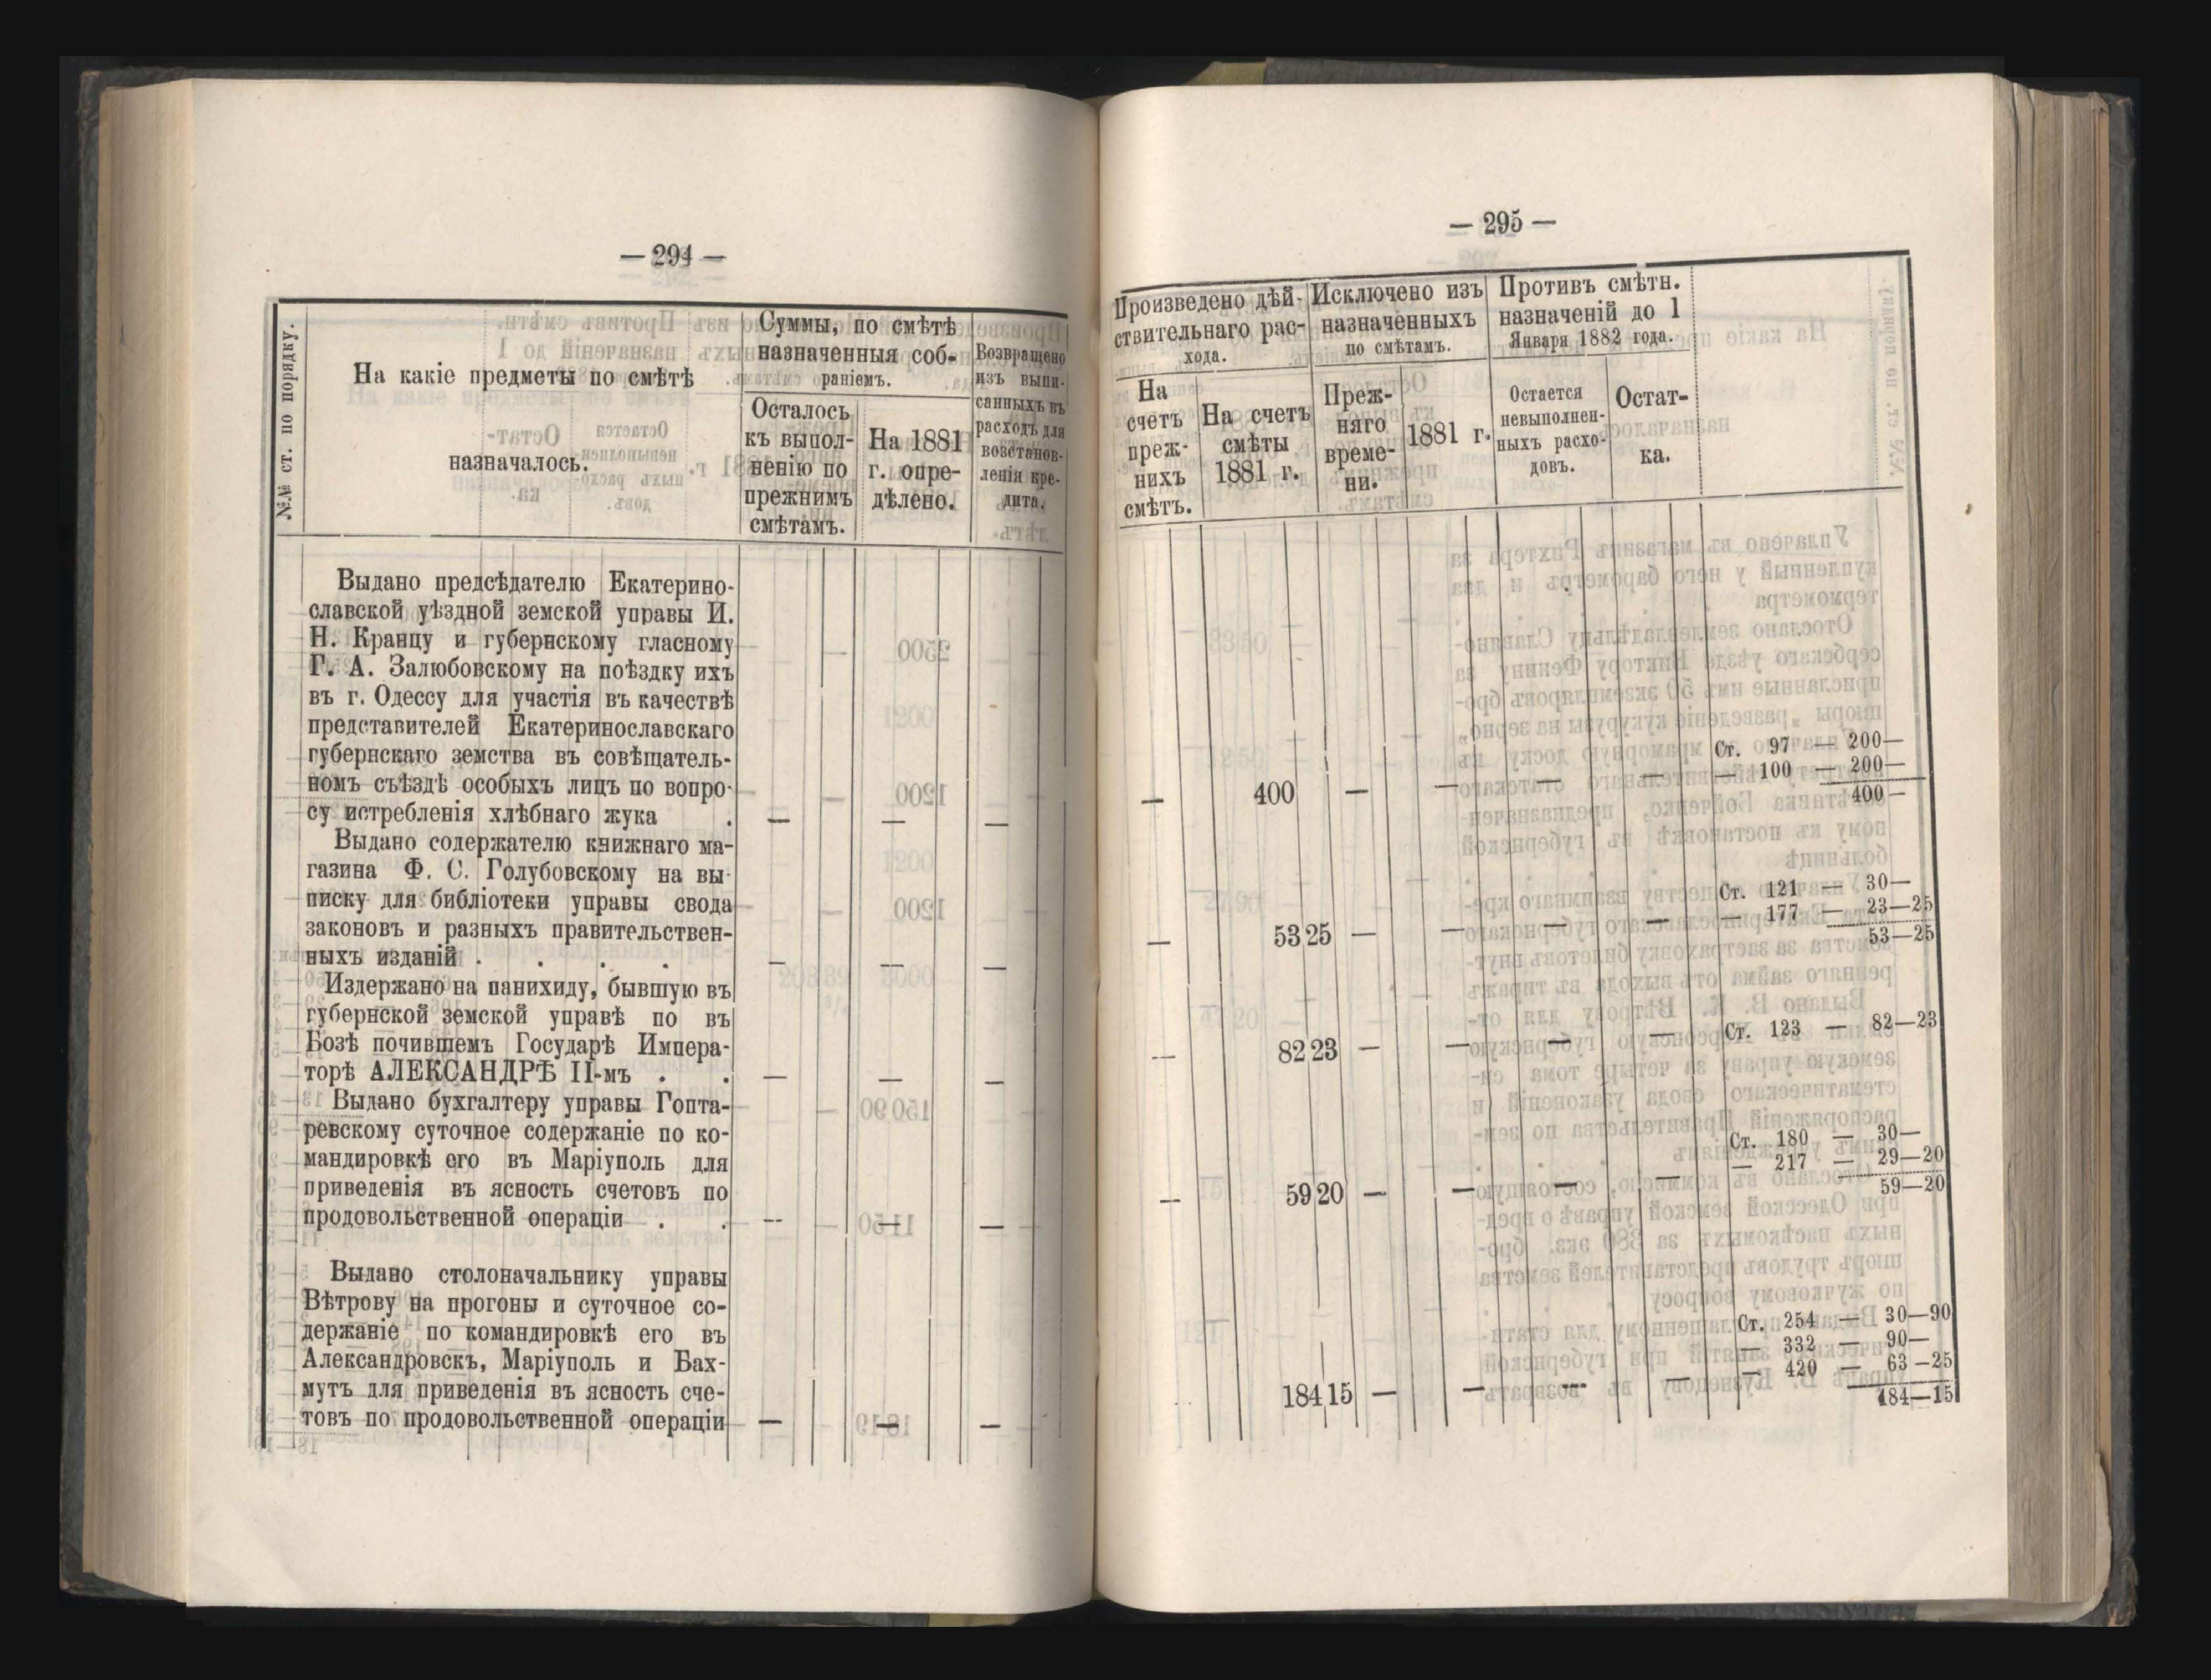 — 294 —
№№ ст. по порядку.
На какіе предметы по смѣтѣ
назначалось.
Суммы, по смѣтѣ
назначенныя соб-
раніемъ.
Осталось
къ выпол-
ненію по
прежнимъ
смѣтамъ.
На 1881
г. опре-
дѣлено.
Возвращено
изъ выпи-
санныхъ въ
расходъ для
возстанов-
ленія кре-
дита.
Выдано предсѣдателю Екатерино-
славской уѣздной земской управы И.
Н. Кранцу и губернскому гласному
Г. А. Залюбовскому на поѣздку ихъ
въ г. Одессу для участія въ качествѣ
представителей Екатеринославскаго
губернскаго земства въ совѣщатель-
номъ съѣздѣ особыхъ лицъ по вопро-
су истребленія хлѣбнаго жука . — — —
Выдано содержателю книжнаго ма-
газина Ф. С. Голубовскому на вы-
писку для библіотеки управы свода
законовъ и разныхъ правительствен-
ныхъ изданій . . . . — — —
Издержано на панихиду, бывшую въ
губернской земской управѣ по въ
Бозѣ почившемъ Государѣ Импера-
торѣ АЛЕКСАНДРѢ II-мъ . . — — —
Выдано бухгалтеру управы Гопта-
ревскому суточное содержаніе по ко-
мандировкѣ его въ Маріуполь для
приведенія въ ясность счетовъ по
продовольственной операціи . . — — —
Выдано столоначальнику управы
Вѣтрову на прогоны и суточное со-
держаніе по командировкѣ его въ
Александровскъ, Маріуполь и Бах-
мутъ для приведенія въ ясность сче-
товъ по продовольственной операціи — — —
— 295 —
Произведено дѣй-
ствительнаго рас-
хода.
Исключено изъ
назначенныхъ
по смѣтамъ.
Противъ смѣтн.
назначеній до 1
Января 1882 года.
На
счетъ
преж-
нихъ
смѣтъ.
На счетъ
смѣты
1881 г.
Преж-
няго
време-
ни.
1881 г.
Остается
невыполнен-
ныхъ расхо-
довъ.
Остат-
ка.
Ст. 97 — 200—
— 100 — 200—
— 400 — — — — 400—
Ст. 121 — 30—
— 177 — 23—25
— 53 25 — — — — 53—25
— 82 23 — — — — Ст. 123 — 82—23
Ст. 180 — 30—
— 217 — 29—20
— 59 20 — — — — 59—20
Ст. 254 — 30—90
— 332 — 90—
— 420 — 63—25
184 15 — — — — 184—15